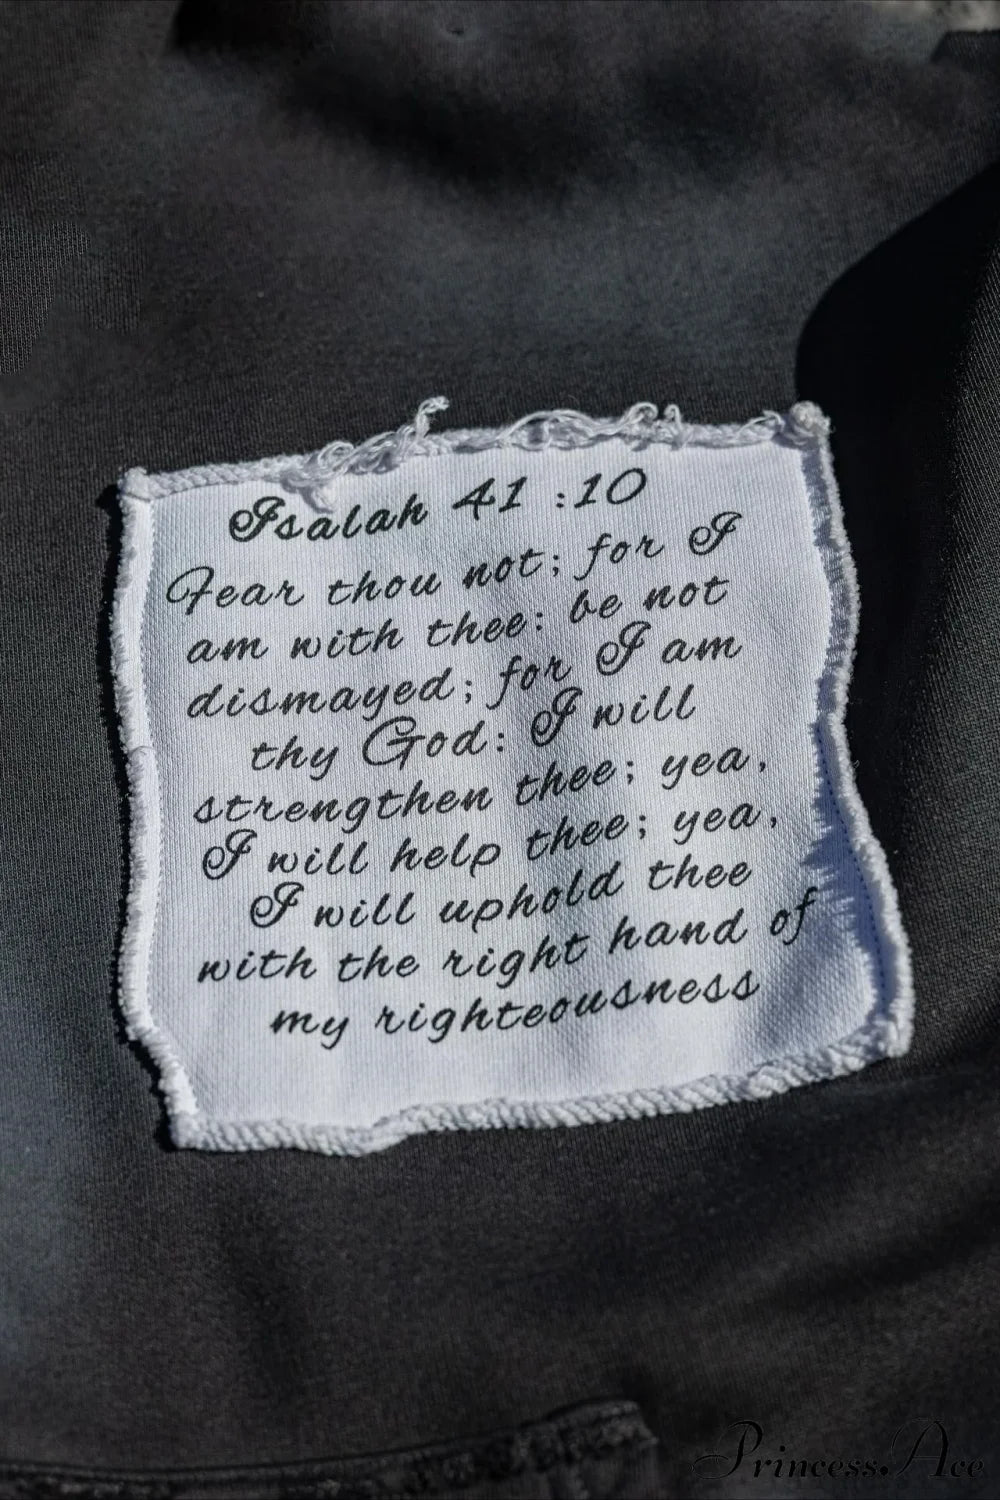 Isalah 41 :10
Fear thou not; for I
am with thee: be not
dismayed; for I am
thy God: I will
strengthen thee; yea,
I will help thee; yea,
I will uphold thee
with the right hand of
my righteousness
Princess.Ace